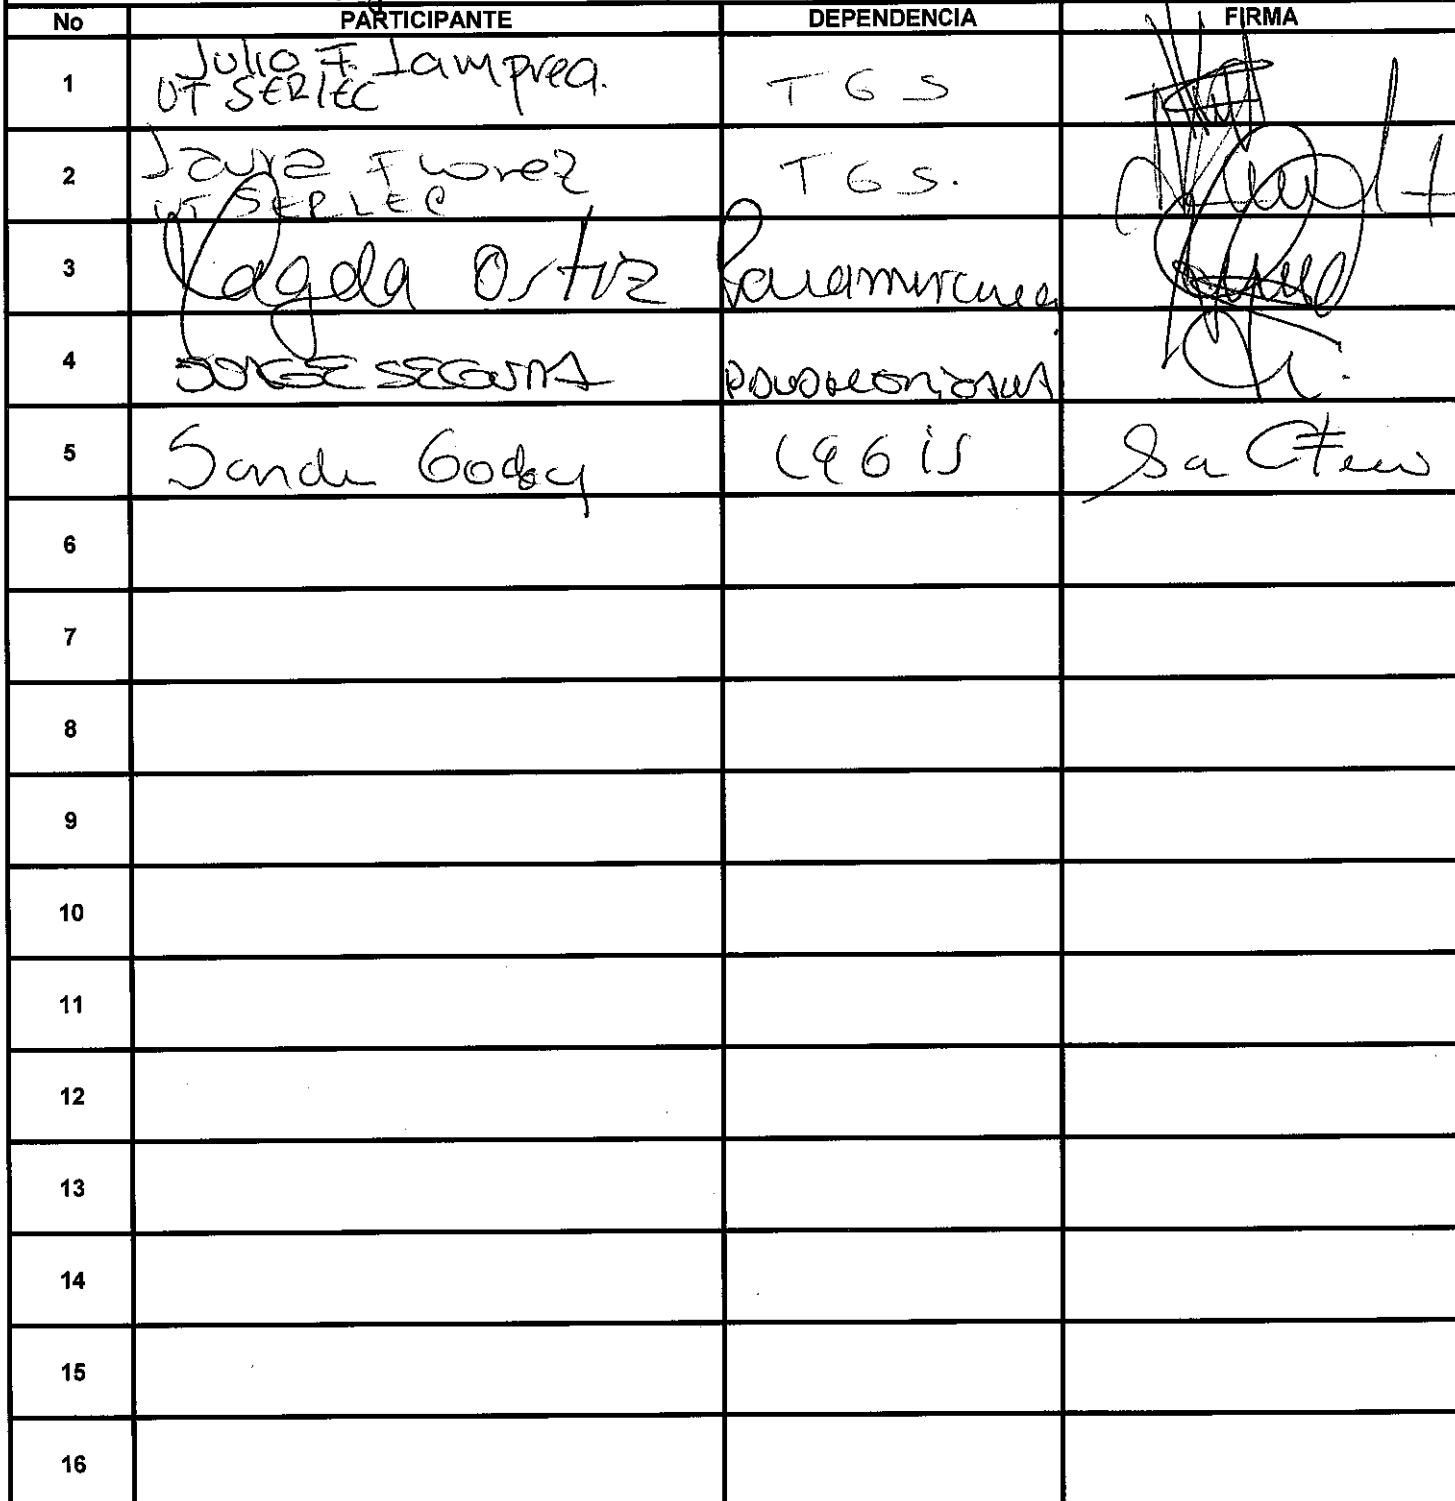 No PARTICIPANTE DEPENDENCIA FIRMA
1 Julio F. Lamprea. TGS
UT SERLEC
2 Laura Florez TGS.
UT SERLEC
3 Magda Ortiz
4 JORGE SEGURA
5 Sandra Godoy
6
7
8
9
10
11
12
13
14
15
16